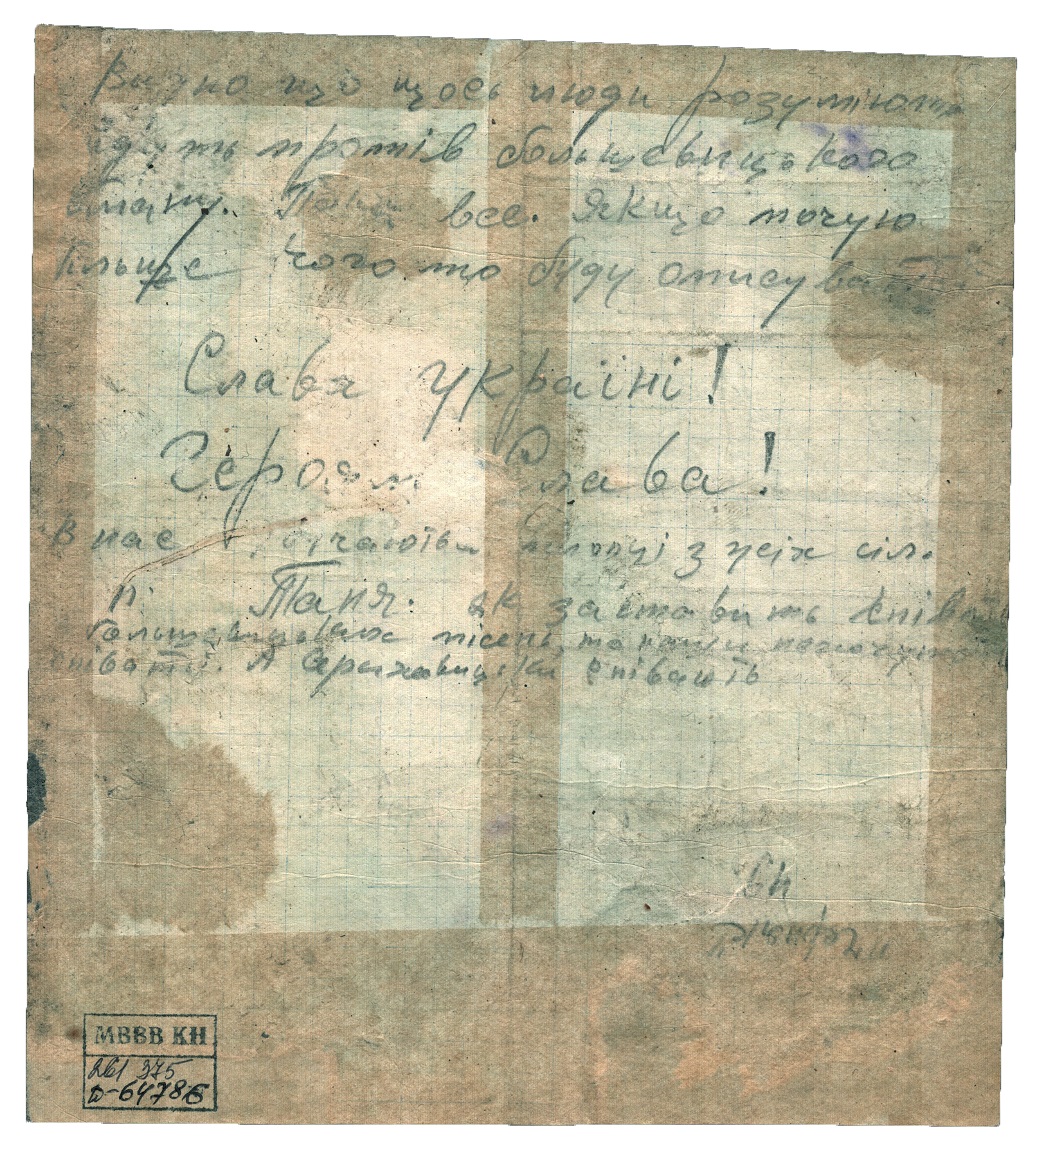 Видно що щось люди розуміють
йдуть протів большевицького
обману. Поки все. Якщо почую
більше чого то буду описувати
Слава Україні!
Героям Слава!
В нас хлопці з усіх сіл.
П. Таня. як заставить співати
большевицьких пісень, то
співати. А співають
МВВВ КН
261 375
D-6478б